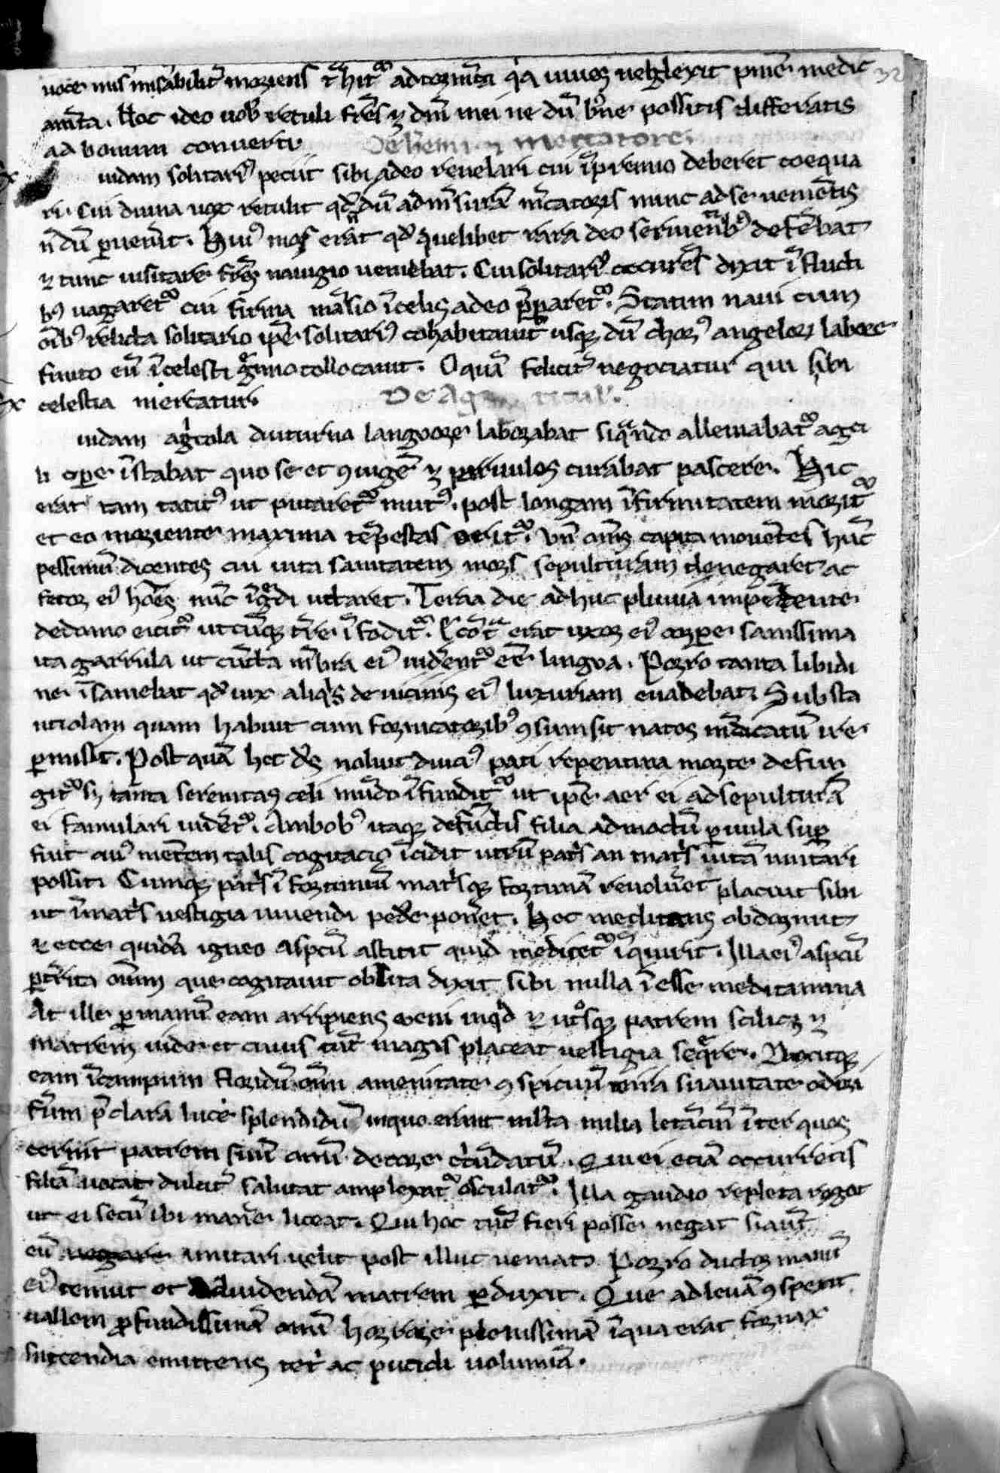 uoce miserabiliter moriens trahitur ad tormenta quia uiuens neglexit penitentie medic 32
amenta. Hoc ideo uobis retuli fratres et domini mei ne dum bene possitis differatis
ad bonum conuerti. De heremita et mercatore.
uidam solitarius petiit sibi a deo reuelari cui in premio deberet coequa
ri. Cui diuina uox retulit quod dum ad mensuram mercatoris nunc ad se uenientis
non dum peruenerit. Huius mos erat quod quelibet rara deo seruientibus deferebat
et tunc uisitare fratres nauigio ueniebat. Cui solitarius occurrens dixit in flucti
bus uagaretur cui firma mansio in celis a deo prepararetur. Statim naui cum
omnibus relicta solitario ipse solitarius cohabitauit usque dum chorus angelorum labore
finito eum in celesti regno collocauit. O quam feliciter negociatur qui sibi
celestia mercatur. De Ag titul.
uidam agricola diuturno languore laborabat si quando alleuiabatur agri
li opere instabat quo se et coniugem et paruulos curabat pascere. Hic
erat tam tacitus ut putaretur mutus. post longam infirmitatem moritur
et eo moriente maxima tempestas oritur. Unde omnes capita mouentes hunc
pessimum dicentes cui uita sanitatem mors sepulturam denegaret ac
fetor eius homines nunc ingredi uetaret. Tercia die adhuc pluuia impendente
de domo eicitur utcunque terre infoditur. Econtra erat uxor eius corpore sanissima
ita garrula ut cuncta membra eius uiderentur esse lingua. Porro tanta libidi
ne insaniebat quod uix aliquis de uicinis eius luxuriam euadebat. Substa
ntiolam quam habuit cum fornicatoribus consumsit natos mendicatum ire
permisit. Postquam hec deus noluit diucius pati repentina morte defun
gitur sed tanta serenitas celi mundo infunditur ut ipse aer ei ad sepulturam
ei famulari uideretur. Ambobus itaque defunctis filia admodum paruula super
fuit cuius mentem talis cogitacio incidit utrum patris an matris uitam imitari
possit. Cumque patris infortunium matrisque fortunam reuolueret placuit sibi
ut in matris uestigia uiuendi pedem poneret. Hoc meditans obdormiuit
et ecce quidam igneo aspectu astitit quid meditetur inquirit. Illa eius aspectu
perterrita omnium que cogitauit oblita dixit sibi nulla inesse meditamina
At ille per manum eam arripiens ueni inquid et utrosque patrem scilicet et
matrem uide et cuius tunc magis placeat uestigia sequere. Duxitque
eam in campum floridum omni amenitate conspicuum mira suauitate odori
ferum preclara luce splendidum in quo erant multa milia letancium inter quos
cernit patrem suum omni decore circumdatum. Qui ei etiam occurrens
filiam uocat dulciter salutat amplexatur osculatur. Illa gaudio repleta rogat
ut ei secum ibi manere liceat. Qui hoc tunc fieri posse negat si autem
eum imitari uelit post illuc ueniat. Porro ductor manum
eius tenuit et ad uidendam matrem perduxit. Que ad leuam conspexit
uallem profundissimam omni horrore plenissimam in qua erat fornax
incendia emittens tetri ac putidi uolumina.